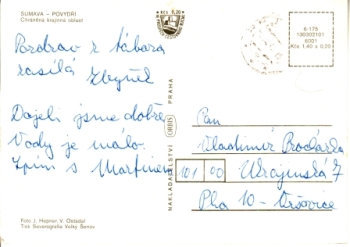 ŠUMAVA – POVYDŘÍ
Chráněná krajinná oblast
Pozdrav z tábora
zasílá Zbyněk
Dojeli jsme dobře
Vody je málo.
Spím s Martinem
Foto J. Hepner, V.
Tisk Severografia Velký Šenov
NAKLADATELSTVÍ ORBIS PRAHA
Kčs 0,30
6-175
Kčs 1,40 + 0,20
Pan
Vladimír Procházka
101 00 Ukrajinská 7
Pha 10 - Vršovice